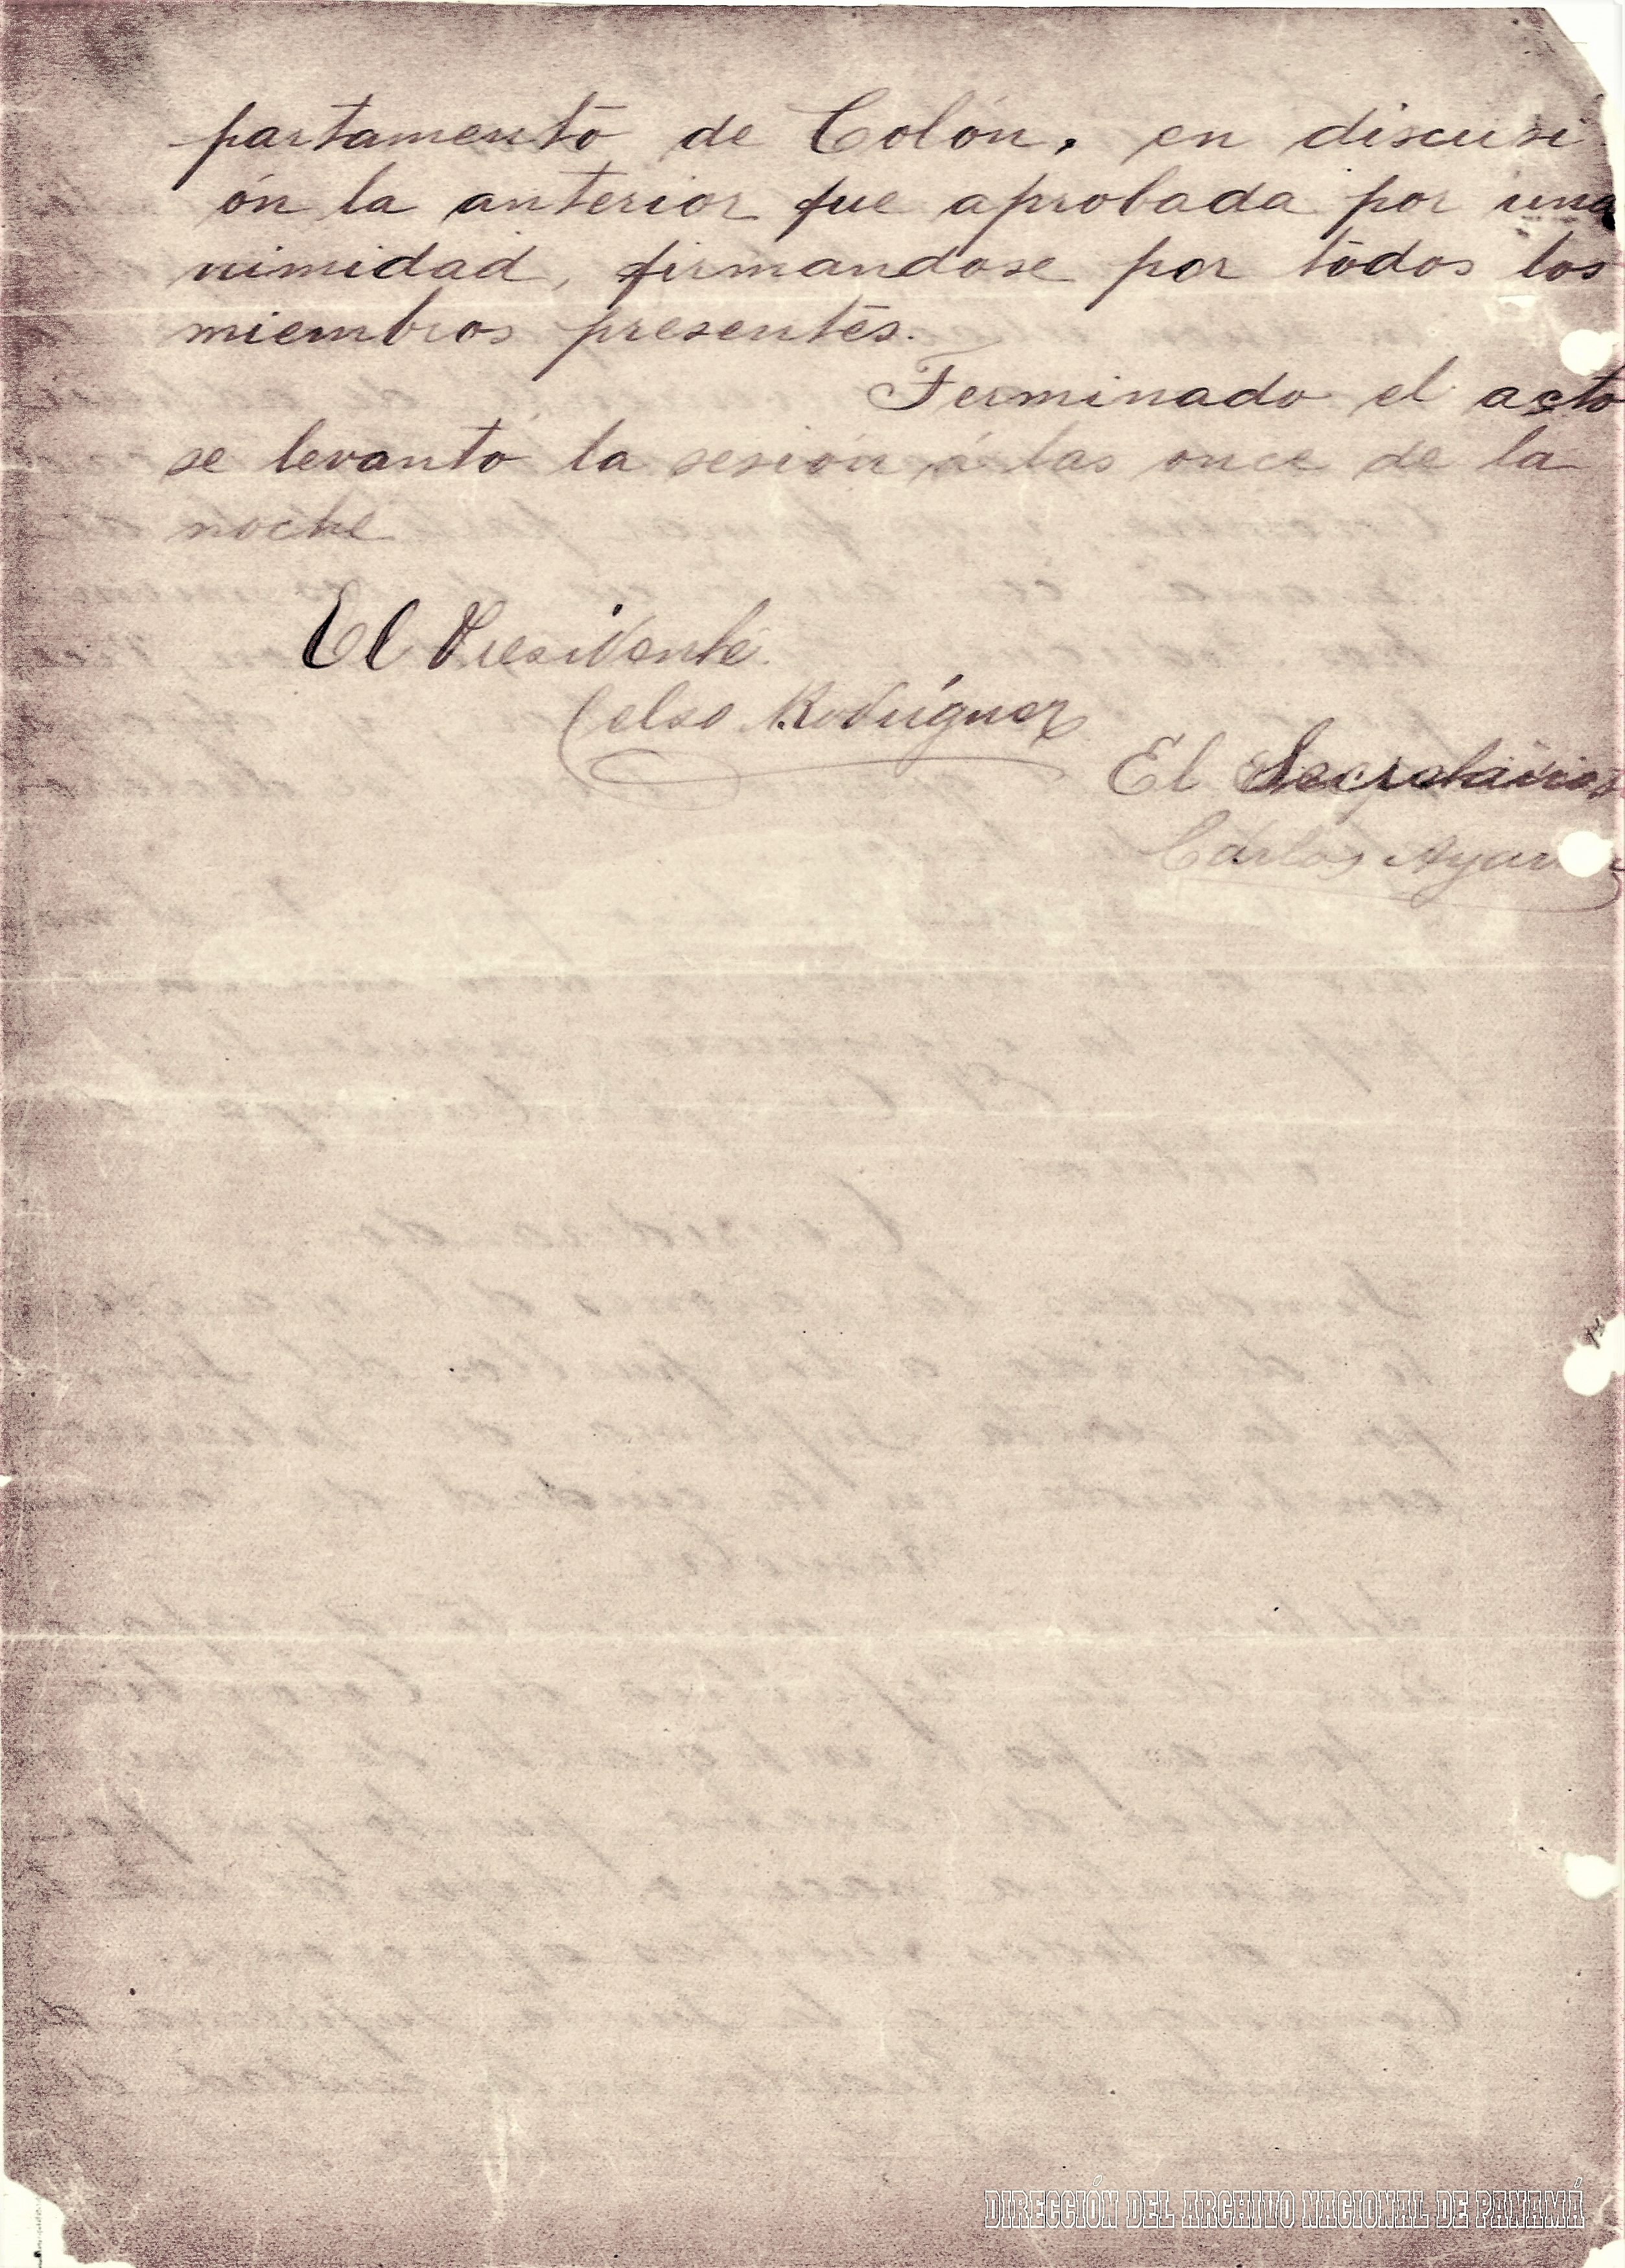 partamento de Colón, en discusi
ón la anterior fue aprobada por una
nimidad, firmandose por todos los
miembros presentes.
Terminado el acto
se levantó la sesión á las once de la
noche
El Presidente
Celso Rodríguez
El Secretario
Carlos
DIRECCIÓN DEL ARCHIVO NACIONAL DE PANAMÁ